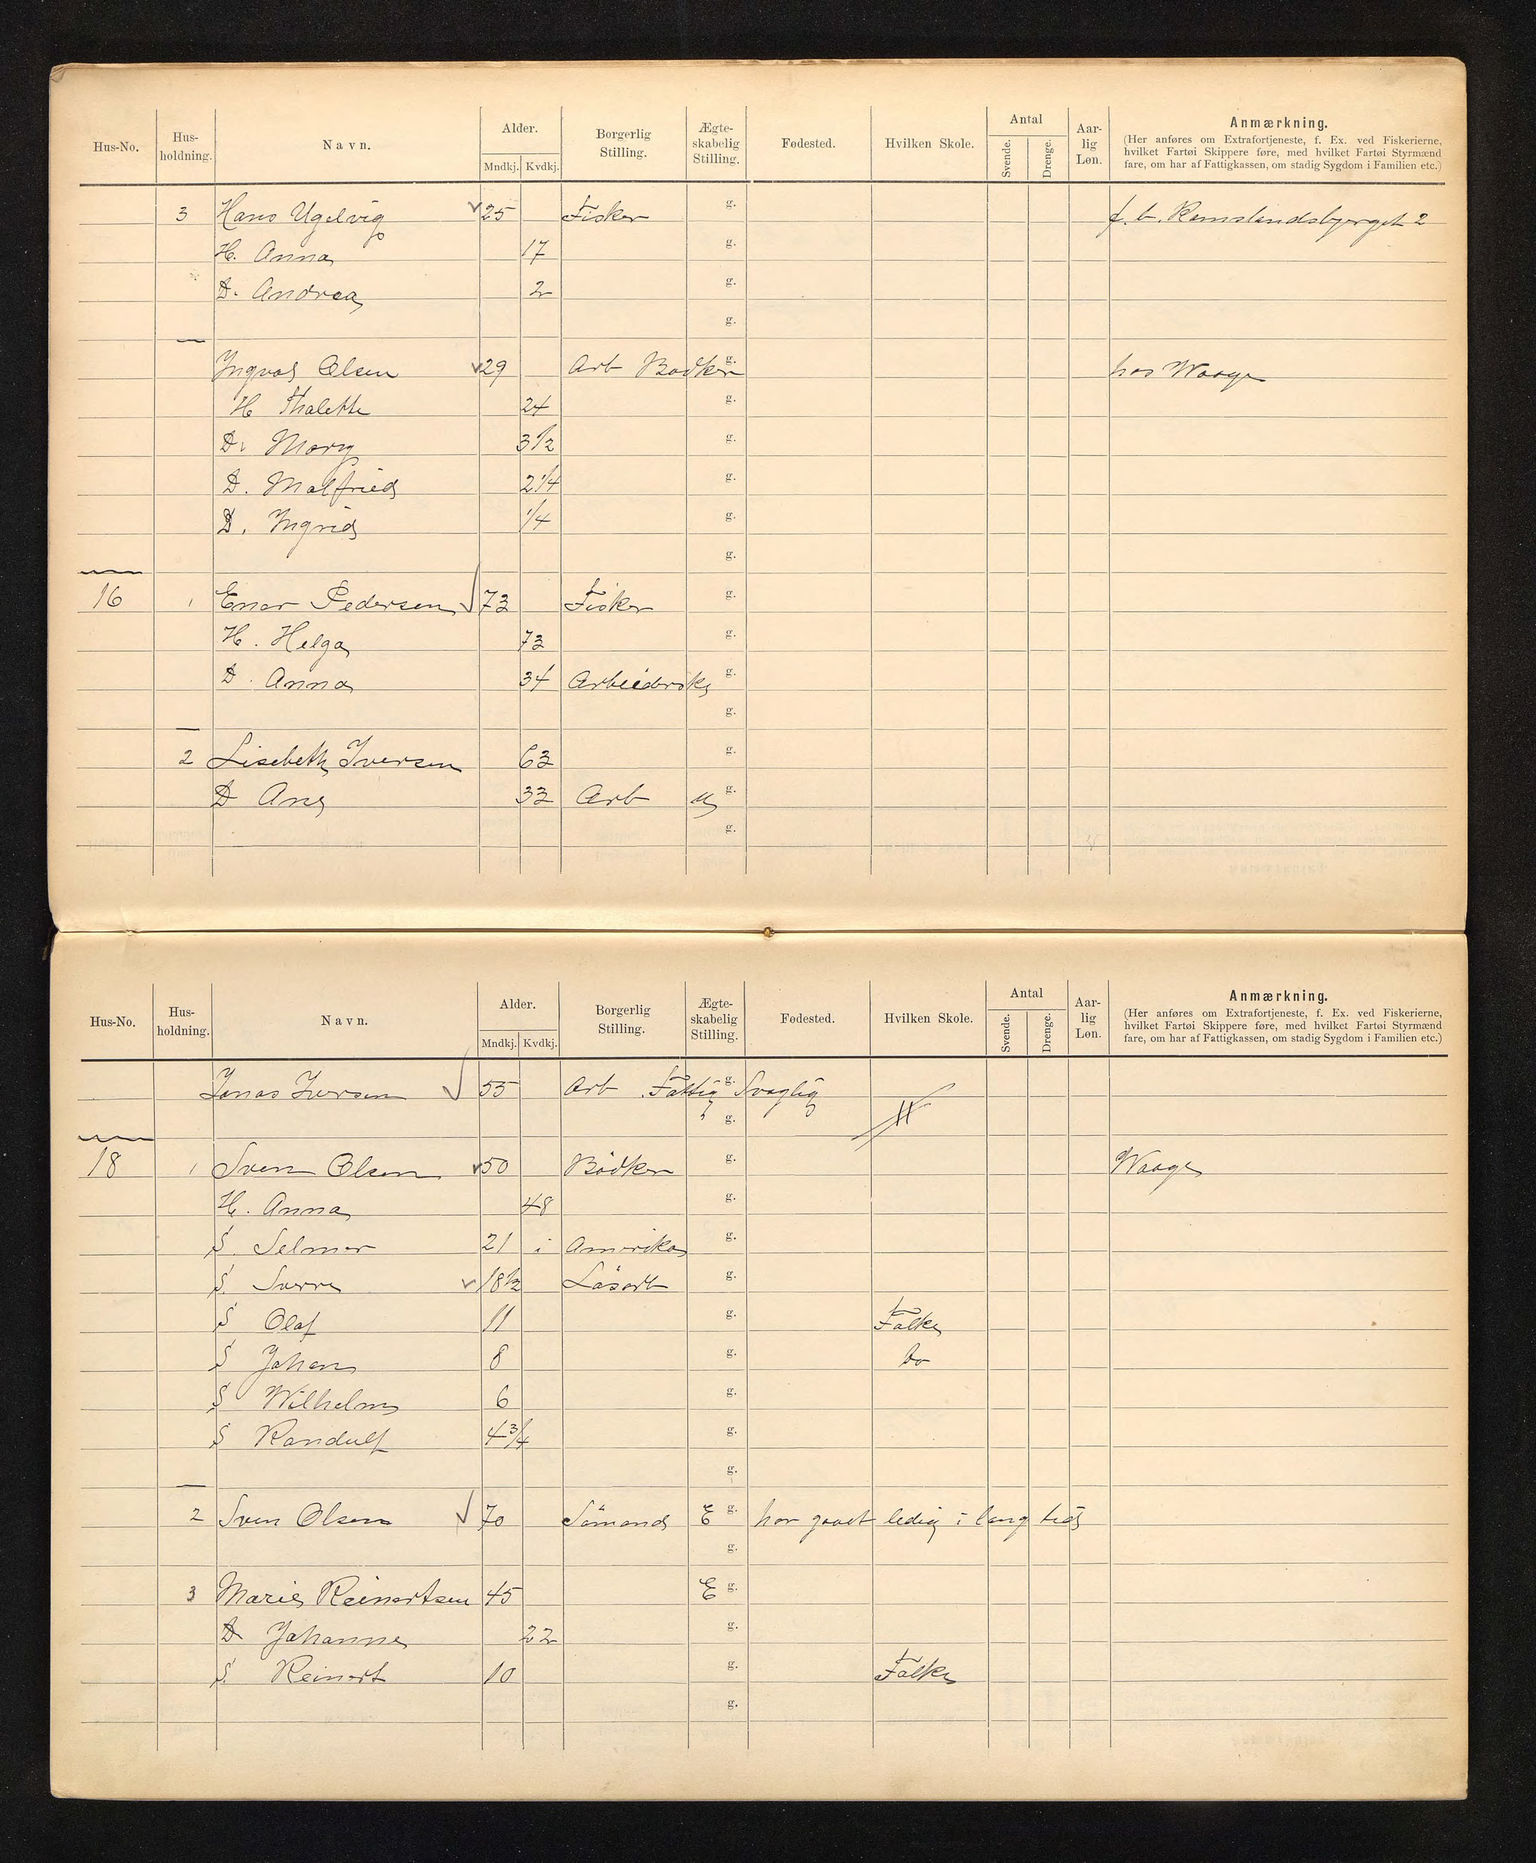 Hus-No. Hus-holdning. Navn. Alder. Mndkj. Kvdkj. Borgerlig Stilling. Ægte-skabelig Stilling. Fødested. Hvilken Skole. Antal Svende. Drenge. Aar-lig Løn. Anmærkning.
(Her anføres om Extrafortjeneste, f. Ex. ved Fiskerierne,
hvilket Fartøi Skippere føre, med hvilket Fartøi Styrmænd
fare, om har af Fattigkassen, om stadig Sygdom i Familien etc.)
3 Hans Ugelvig 25 Fisker g. f. b. Ramslandsbjerget 2
H. Anna 17 g.
D. Andrea 2 g.
g.
Ingvald Olsen 29 Arb Bødker g. hos Waage
H Thalette 24 g.
D. Mary 3 1/2 g.
D. Malfried 2 1/4 g.
D. Ingrid 1/4 g.
g.
16 1 Enar Pedersen 73 Fisker g.
H. Helga 73 g.
D. Anna 34 Arbeiderske g.
g.
2 Lisebeth Iversen 63 g.
D Ane 33 Arb u g.
g.
Hus-No. Hus-holdning. Navn. Alder. Mndkj. Kvdkj. Borgerlig Stilling. Ægte-skabelig Stilling. Fødested. Hvilken Skole. Antal Svende. Drenge. Aar-lig Løn. Anmærkning.
(Her anføres om Extrafortjeneste, f. Ex. ved Fiskerierne,
hvilket Fartøi Skippere føre, med hvilket Fartøi Styrmænd
fare, om har af Fattigkassen, om stadig Sygdom i Familien etc.)
Jonas Iversen 55 Arb. Fattig g. Svaglig
g.
18 1 Sven Olsen 50 Bödker g. Waage
H. Anna 48 g.
S. Selmer 21 i Amerika g.
S. Sverre 18 1/2 Lösarb g.
S Olaf 11 g. Folke
S Johan 8 g. do
S Wilhelm 6 g.
S Randulf 4 3/4 g.
g.
2 Sven Olsen 70 Sömand E g. har gaaet ledig i lang tid
g.
3 Marie Reinertsen 45 E g.
D Johanne 22 g.
S. Reinert 10 g. Folke
g.